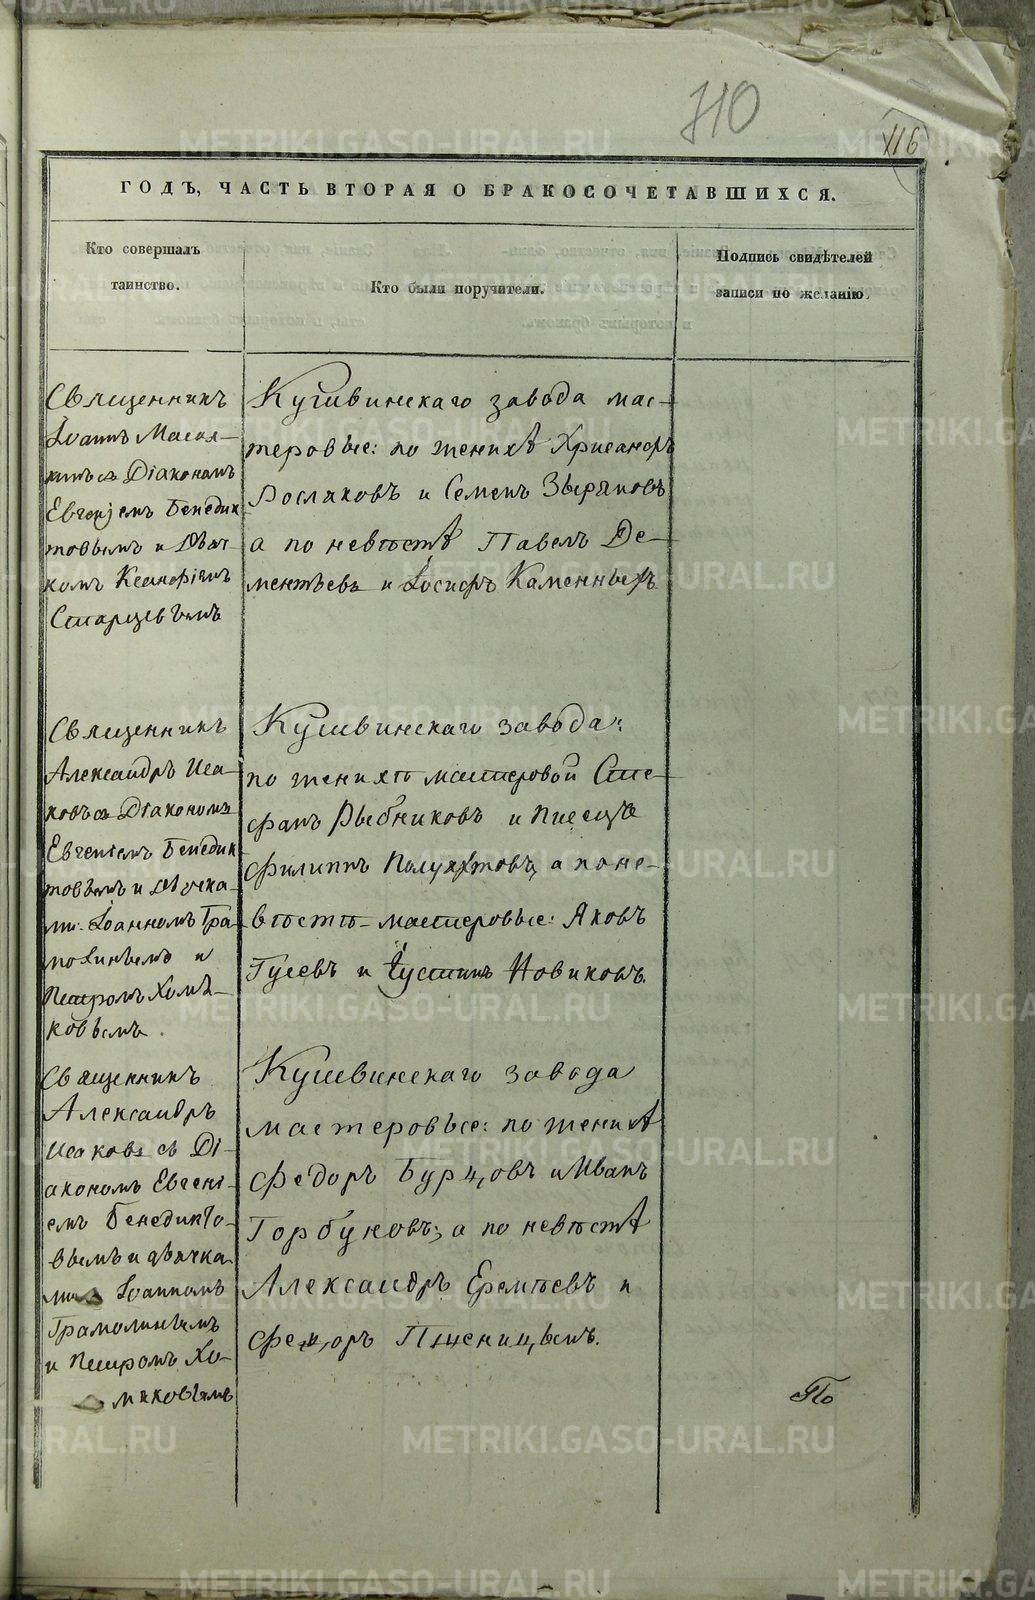 710
116
ГОДЪ, ЧАСТЬ ВТОРАЯ О БРАКОСОЧЕТАВШИХСЯ.
Кто совершалъ
таинство.
Кто были поручители.
Подпись свидѣтелей
записи по желанію.
Священникъ
Іоаннъ Масял-
кинъ съ Діакономъ
Евгеніемъ Бенедик
товымъ и Дьяч-
комъ Ксанфіемъ
Старцевымъ
Кушвинскаго завода мас-
теровые: по женихѣ Хрисанфъ
Росляковъ и Семенъ Зыряновъ
а по невѣстѣ Павелъ Де-
ментьевъ и Іосифъ Каменныхъ
Священникъ
Александръ Иса-
ковъ съ Діакономъ
Евгеніемъ Бенедик
товымъ и дьячка-
ми: Іоанномъ Гра-
молинымъ и
Петромъ Хомя-
ковымъ.
Кушвинскаго завода:
по женихѣ мастеровой Сте-
фанъ Рыбниковъ и писецъ
Филиппъ Полуяхтовъ, а по не-
вѣстѣ мастеровые: Яковъ
Гусевъ и Іустинъ Новиковъ.
Священникъ
Александръ
Исаковъ съ Ді-
акономъ Евгені-
емъ Бенедикто-
вымъ и дьячка
ми Іоанномъ
Грамолинымъ
и Петромъ Хо-
мяковымъ
Кушвинскаго завода
мастеровые: по женихѣ
Федоръ Бурцовъ и Иванъ
Горбуновъ; а по невѣстѣ
Александръ Еремѣевъ и
Федоръ Пшеницынъ.
По
METRIKI.GASO-URAL.RU